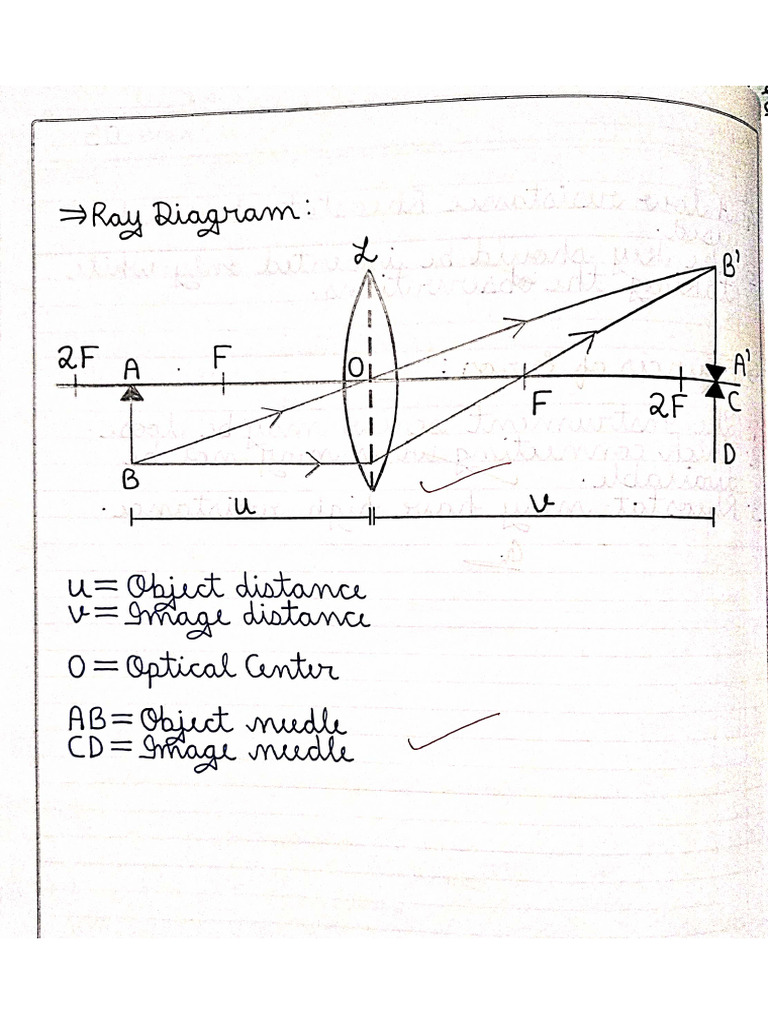 ⇒ Ray Diagram:
L
B'
2F A F O A'
F 2F C
B D
u v
u = Object distance
v = Image distance
O = Optical Center
AB = Object needle
CD = Image needle